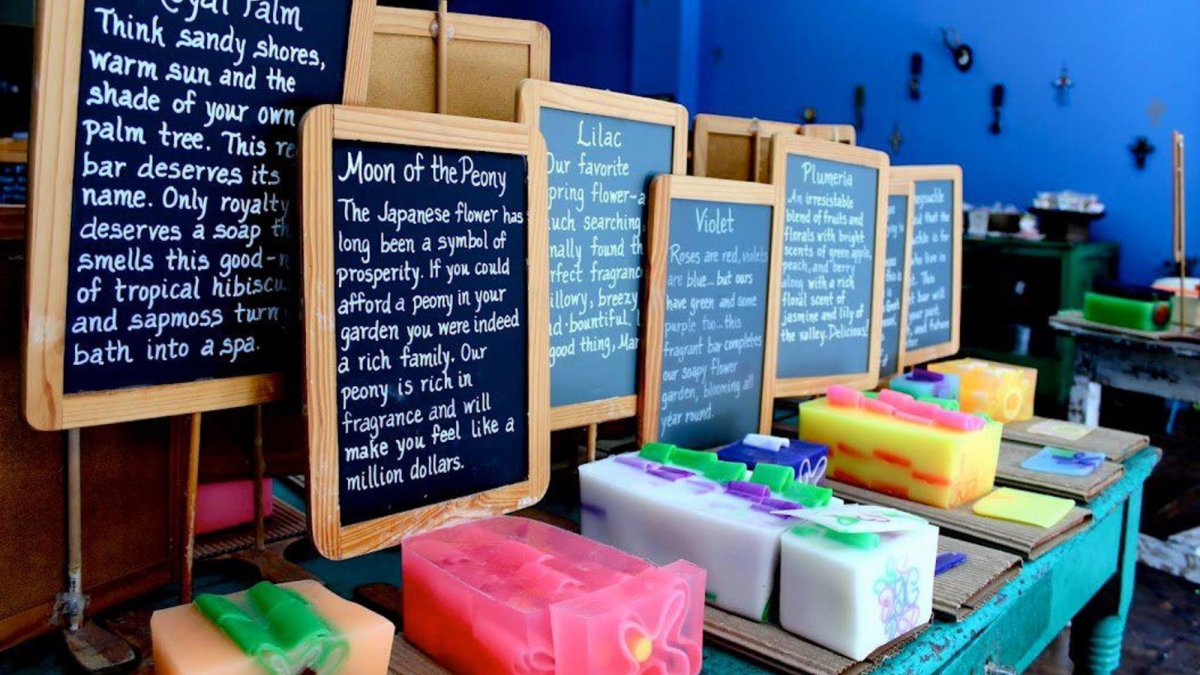 Royal Palm
Think sandy shores,
warm sun and the
shade of your own
palm tree. This
bar deserves its
name. Only royalty
deserves a soap
smells this good-
of tropical hibiscu
and sapmoss turn
bath into a spa.
Moon of the Peony
The Japanese flower has
long been a symbol of
prosperity. If you could
afford a peony in your
garden you were indeed
a rich family. Our
peony is rich in
fragrance and will
make you feel like a
million dollars.
Lilac
Our favorite
spring flower-a
much searching,
nally found th
rfect fragranc
illowy, breezy
and bountiful,
good thing, Mar
Violet
Roses are red, violets
are blue... but ours
have green and some
purple too... this
fragrant bar completes
our soapy flower
garden, blooming all
year round.
Plumeria
An irresistable
blend of fruits and
florals with bright
scents of green apple,
peach, and berry
along with a rich
floral scent of
jasmine and lily of
the valley. Delicious!
suckle
said that the
uckle is for
who live in
past. This
bar will
past,
and future